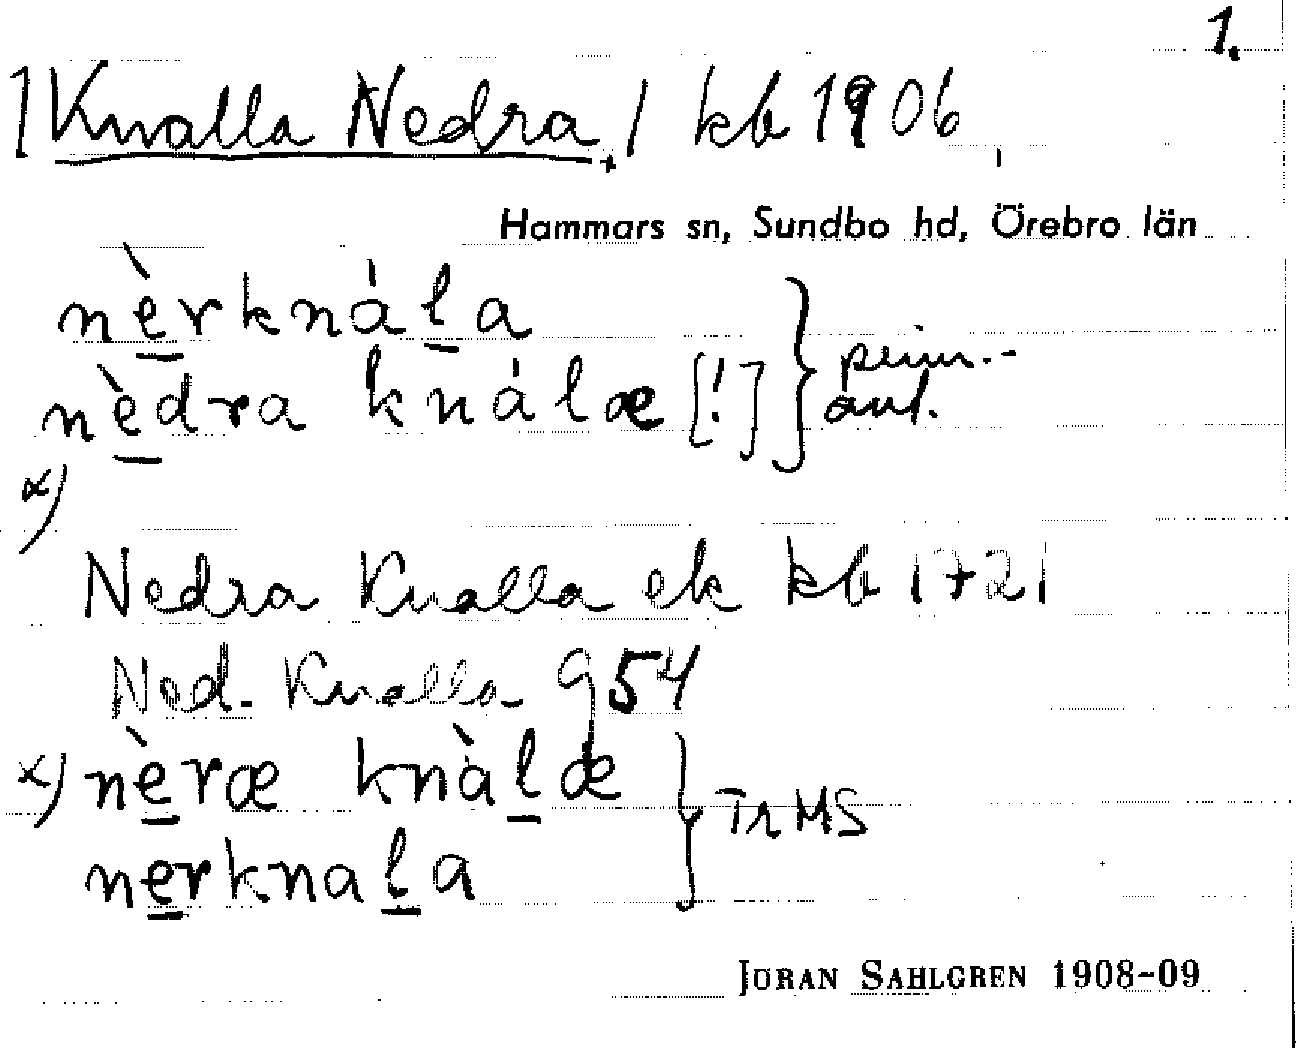 1.
/Knalla Nedra,/ kb 1906,
Hammars sn, Sundbo hd, Örebro län
nèrknála
nèdra knálæ [!]
x)
Nedra Knalla ek kb 1721
Ned. Knalla g54
x) nèræ knàlæ } Tr MS
nerknala
JÖRAN SAHLGREN 1908-09